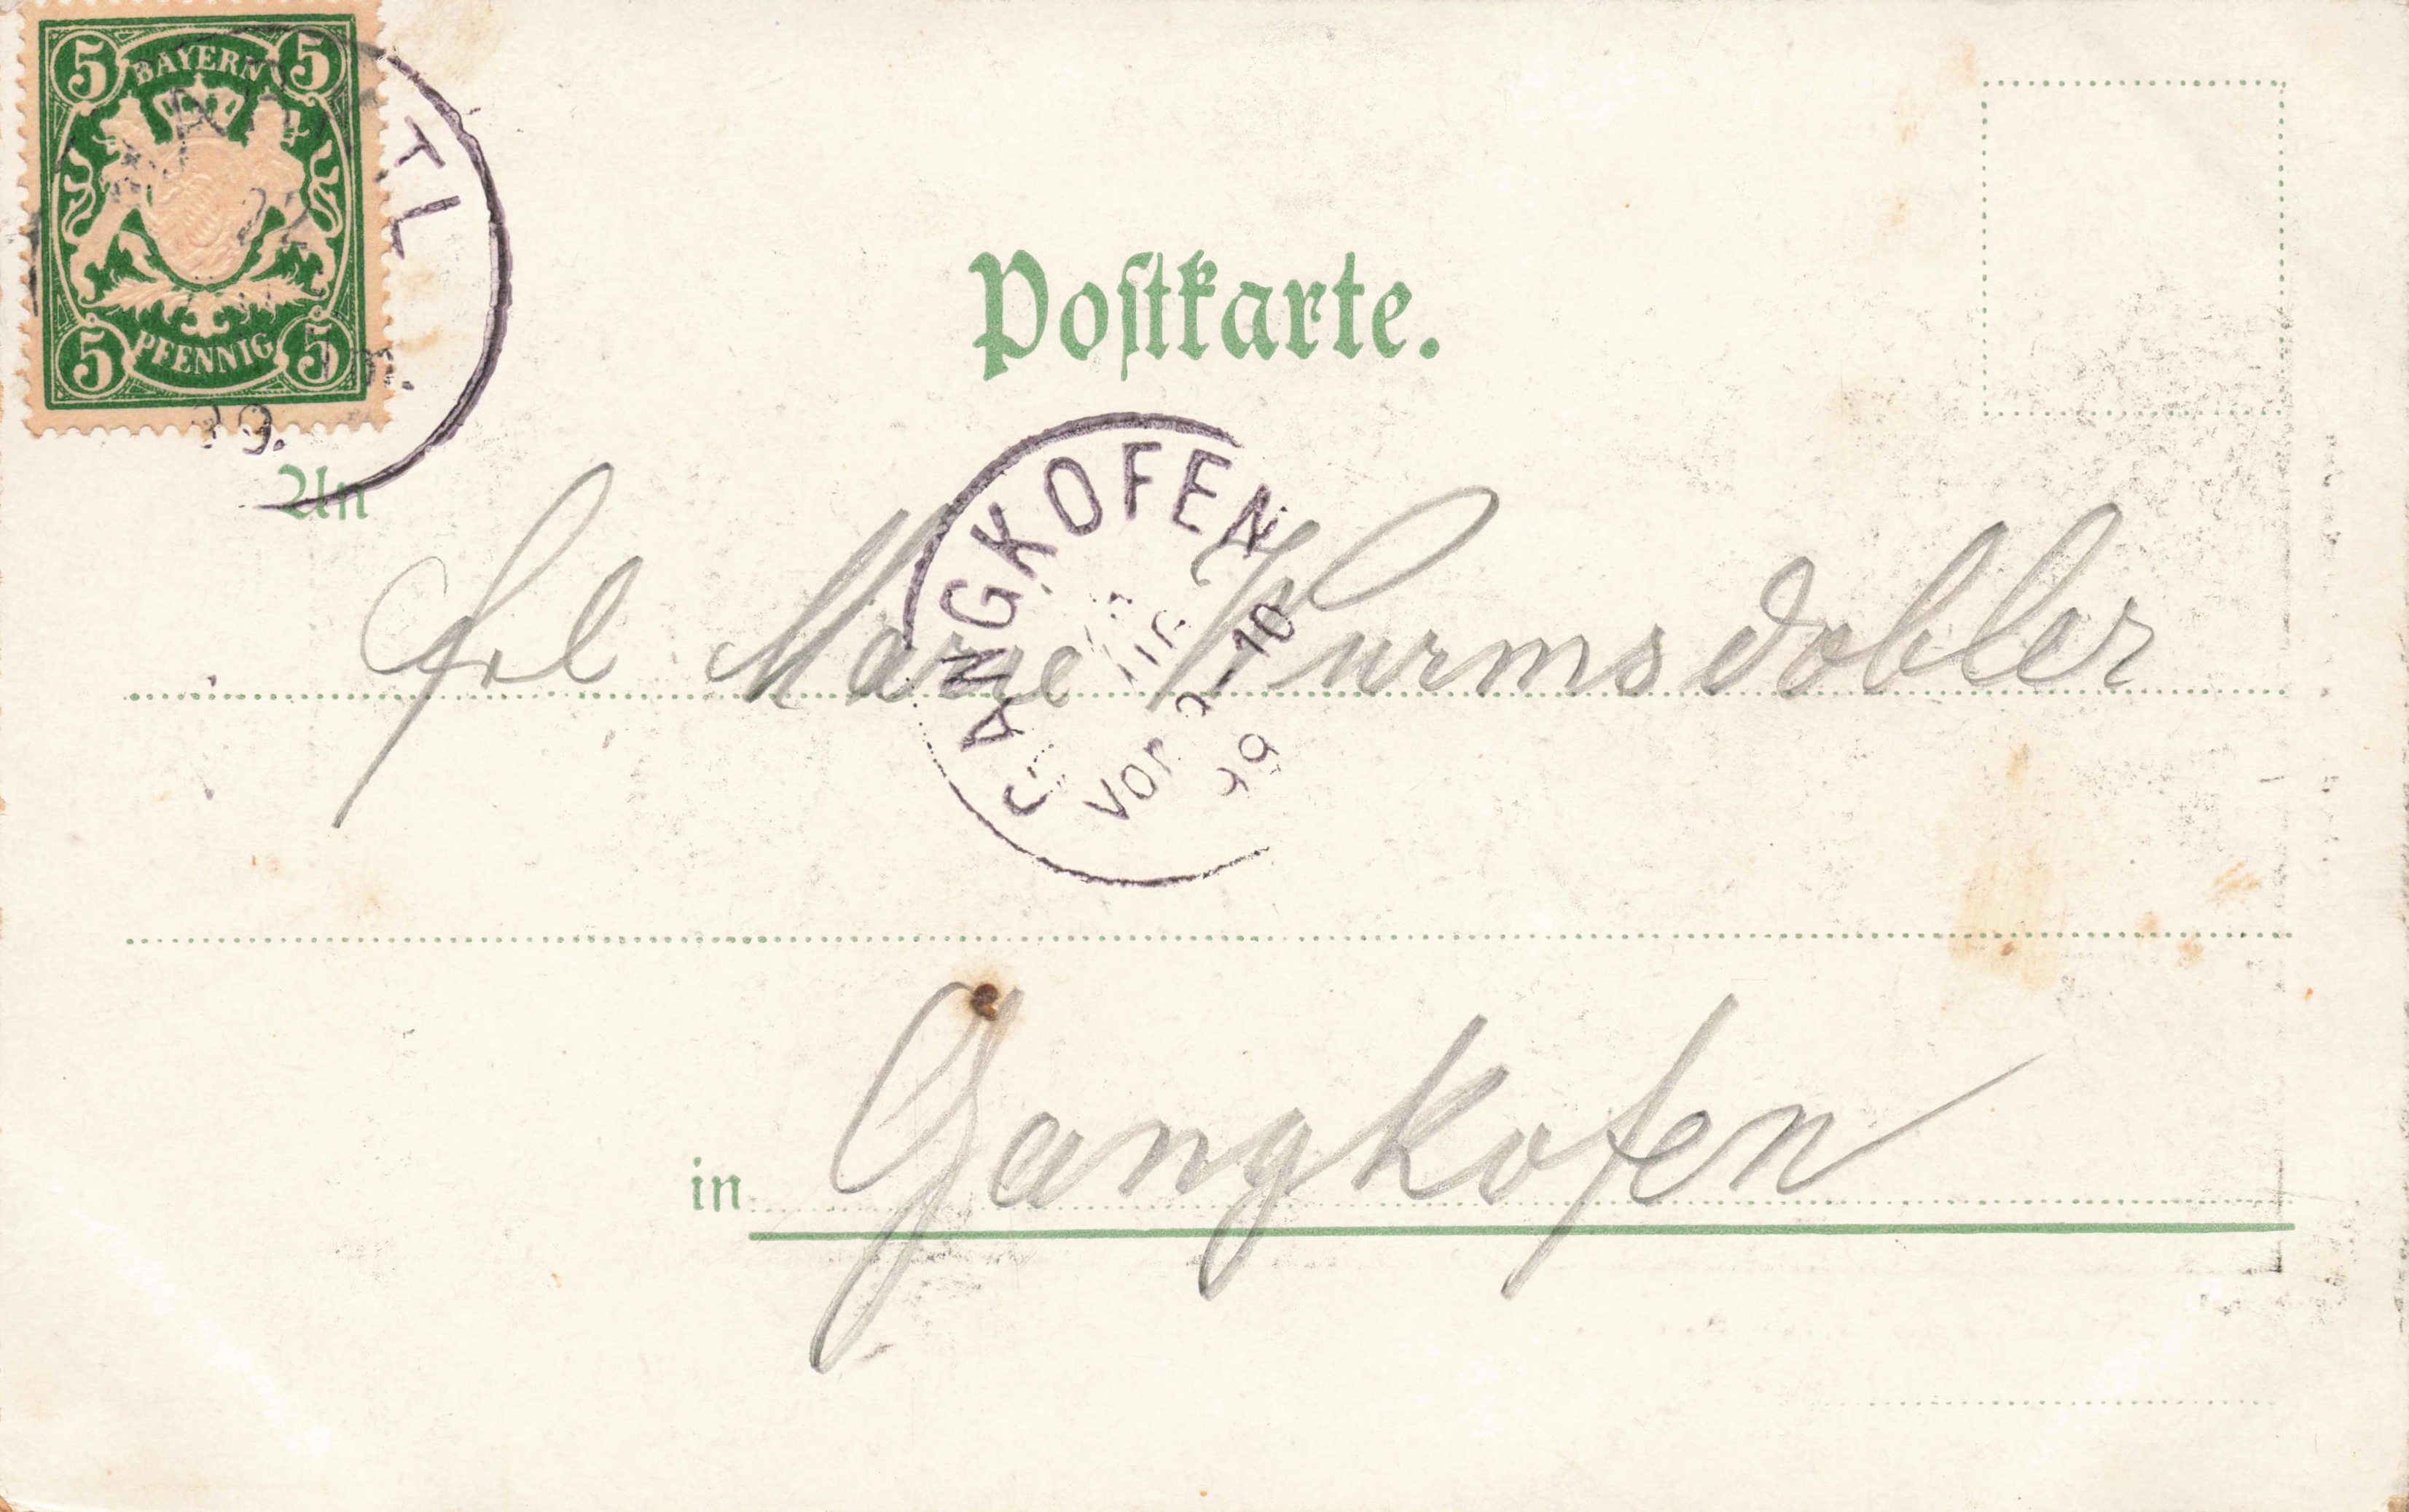 5 BAYERN 5
5 PFENNIG 5
99.
Postkarte.
An
GANGKOFEN
Vor. 10
99
Frl Marie Wurmsdobler
in Gangkofen